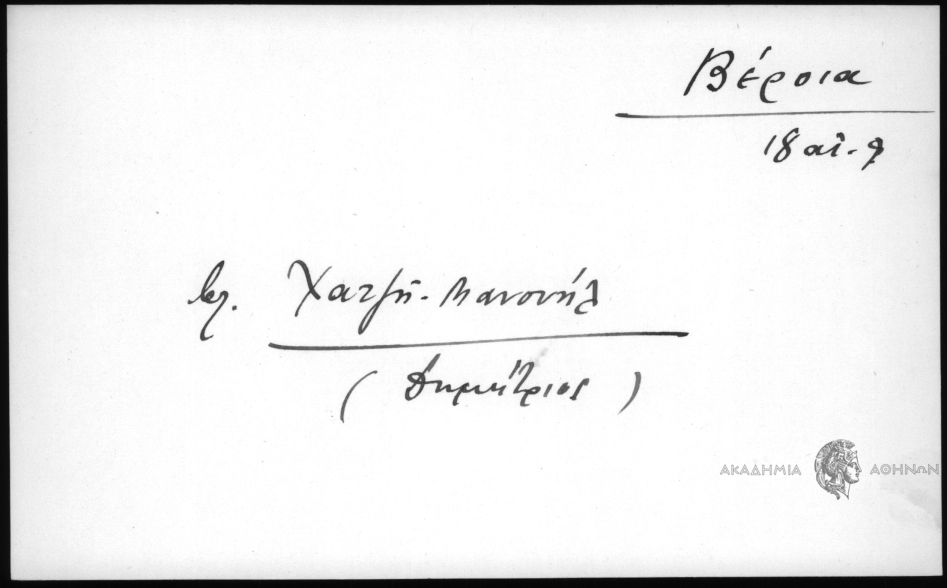 Βέροια
18 αἰ.
βλ. Χατζῆ-Μανουήλ
(Δημήτριος)
ΑΚΑΔΗΜΙΑ ΑΘΗΝΩΝ